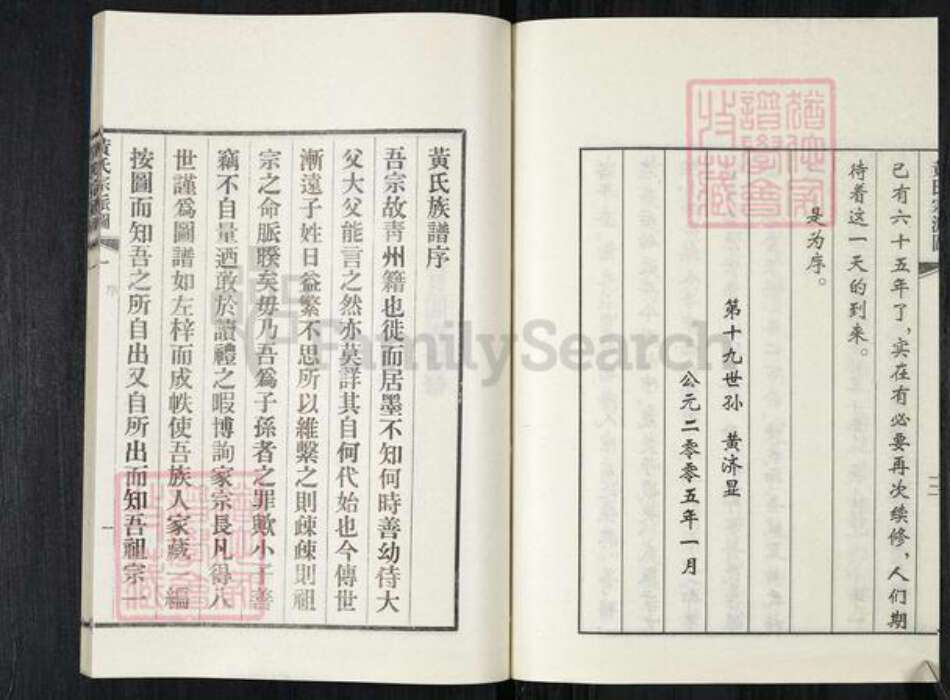 已有六十五年了，实在有必要再次续修，人们期
待着这一天的到来。
是为序。
第十九世孙 黄济显
公元二零零五年一月
黃氏族譜序
吾宗故靑州籍也徙而居墨不知何時善幼待大
父大父能言之然亦莫詳其自何代始也今傳世
漸遠子姓日益繁不思所以維繫之則疎疎則祖
宗之命脈暌矣毋乃吾爲子孫者之罪歟小子善
竊不自量迺敢於讀禮之暇博詢家宗長凡得八
世謹爲圖譜如左梓而成帙使吾族人家藏 編
按圖而知吾之所自出又自所出而知吾祖宗一
黃氏宗派圖
序
一
FamilySearch